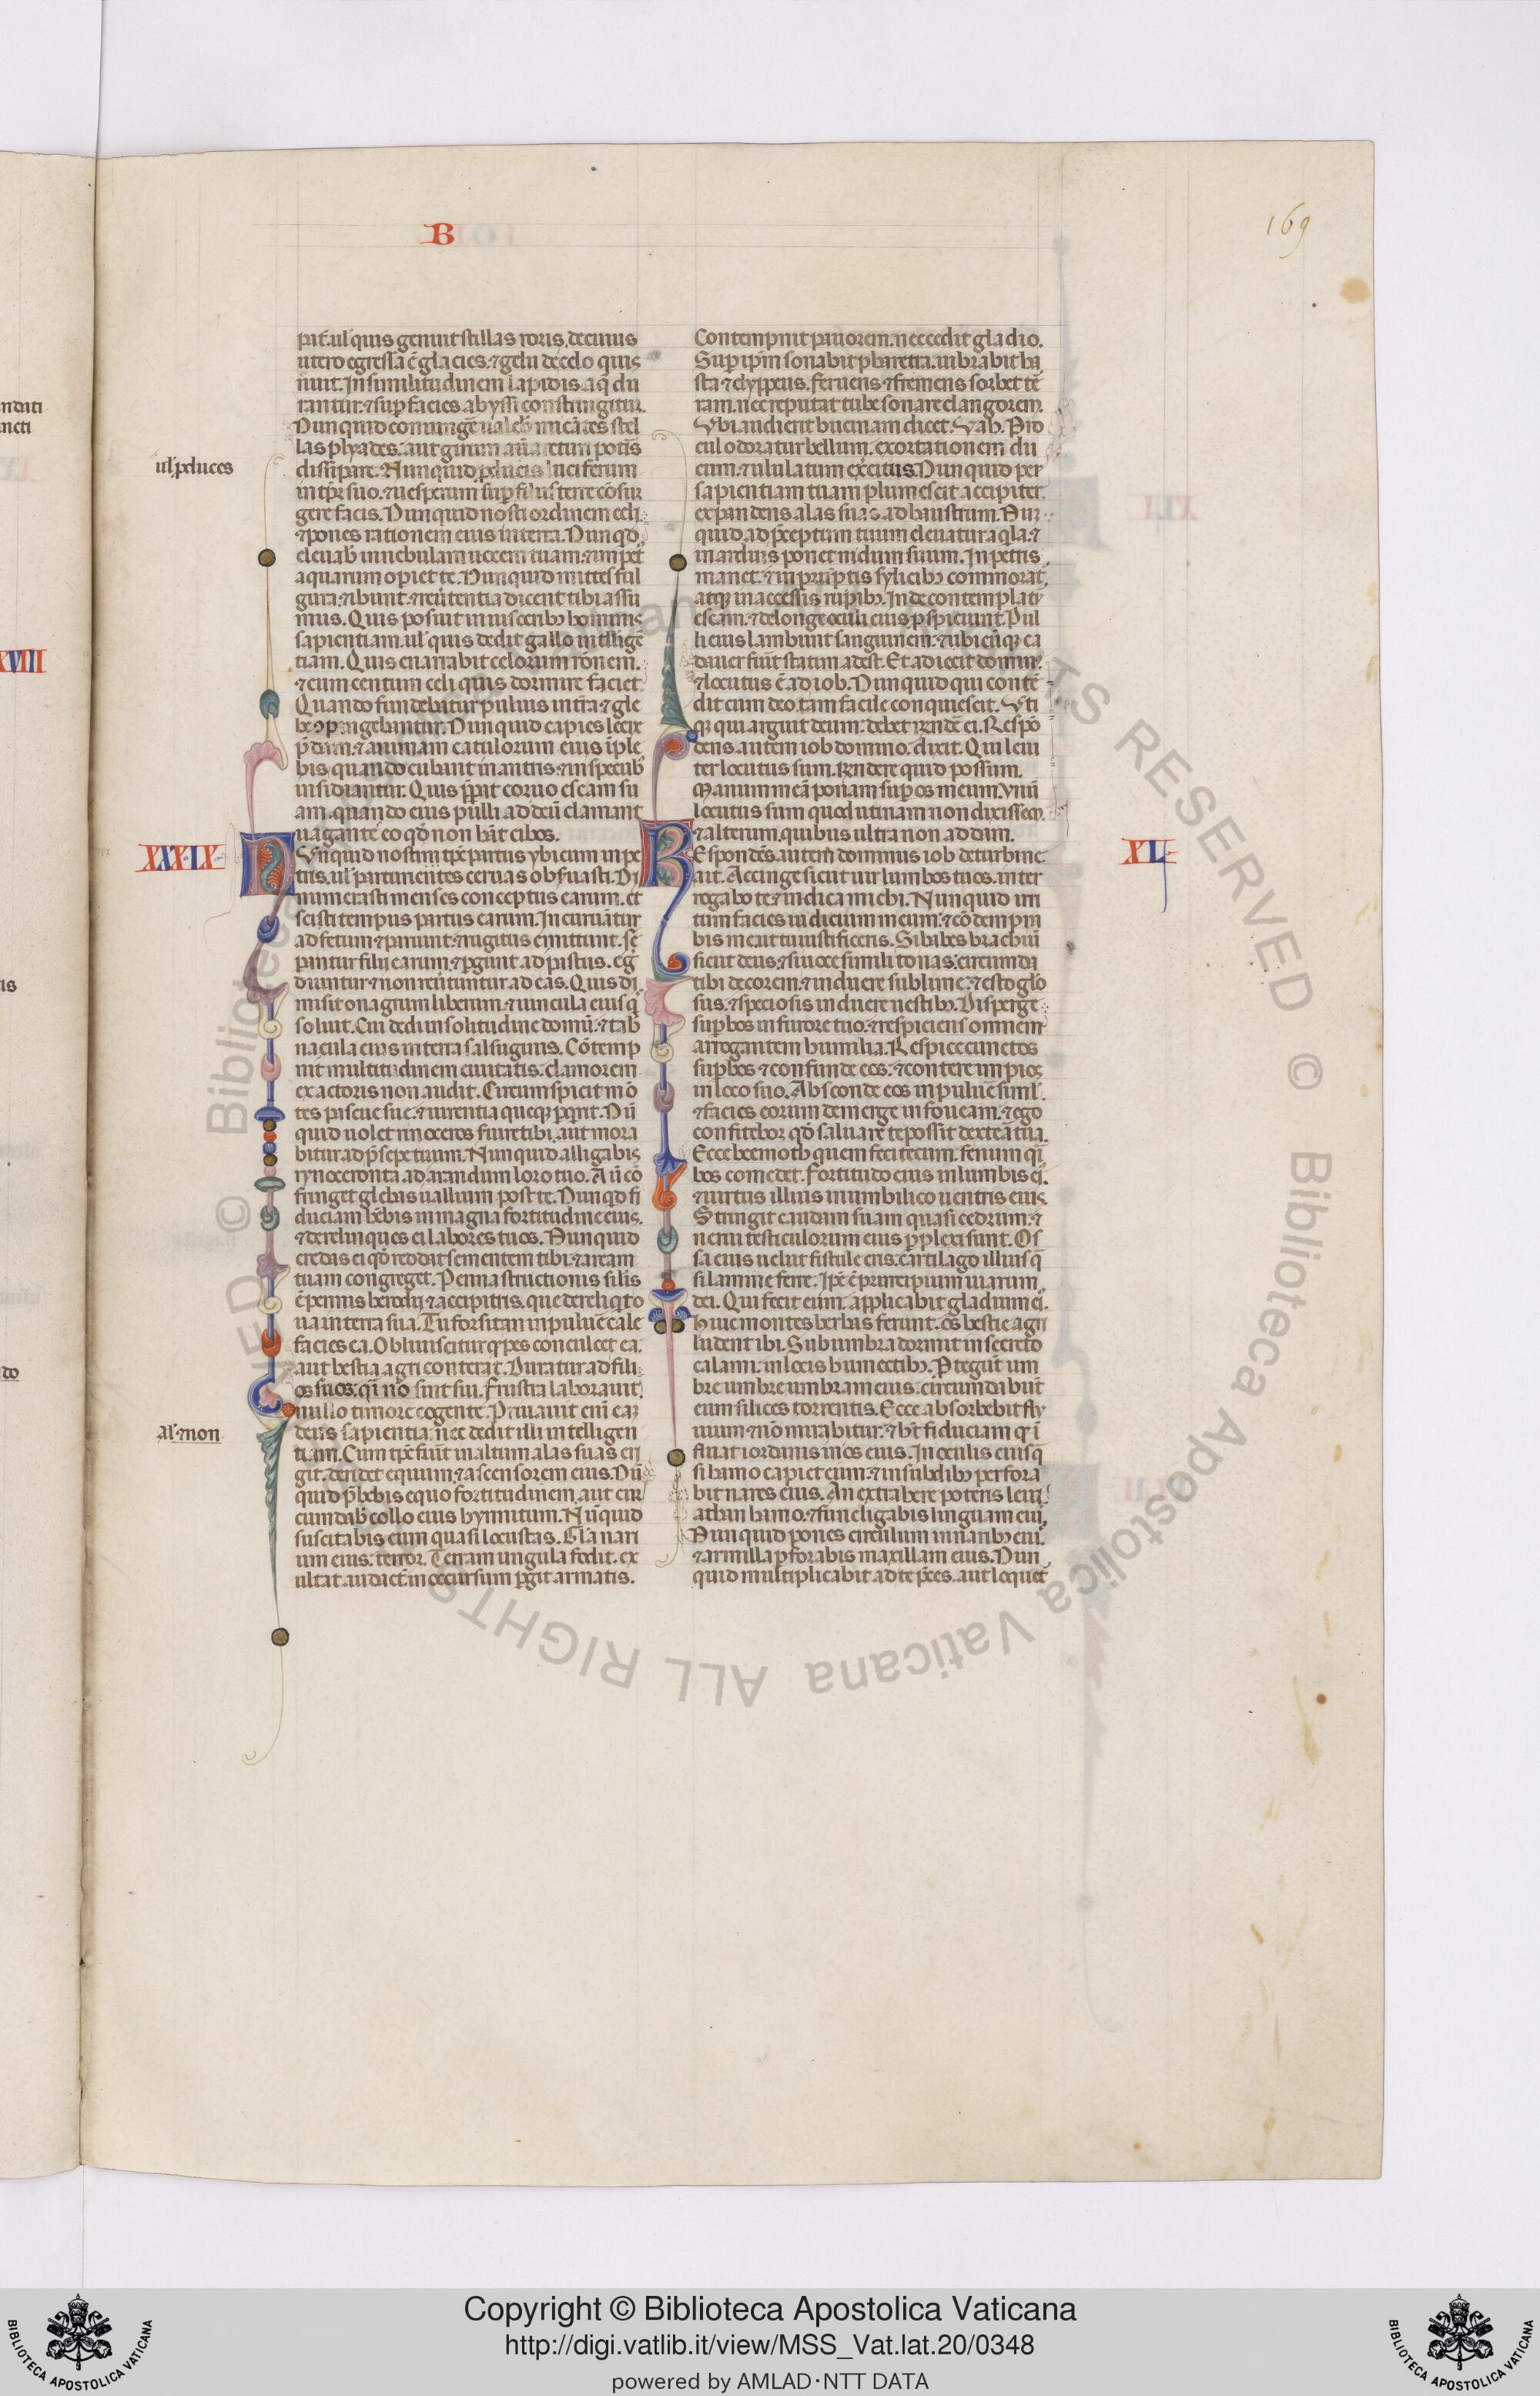 B
169
pat. ul' quis genuit stillas roris. de cuius
utero egressa ē glacies. ⁊ gelu de celo quis
nuit. In similitudinem lapidis aq̄ du
rantur. ⁊ sup̱ facies abyssi constringitur.
las plyades. aut girum
ul' peluces
dissipare. Nunquid producis luciferum
gere facis. Nunquid nosti ordinem celi.
⁊ pones rationem eius in terra. Nunqd
eleuab in nebulam uocem tuam. ⁊ impet
aquarum opiet te. Nunquid mittes ful
gura. ⁊ ibunt. ⁊ reūtentia dicent tibi assu
mus. Quis posuit in uisceribꝫ hominis
sapientiam. ul' quis dedit gallo intellige
tiam. Quis enarrabit celorum rōnem.
⁊ concentum celi quis dormire faciet
Quando fundebatur puluis in tr̄a ⁊ gle
be ↄpingebantur. Nunquid capies leene
p̄dam. ⁊ animam catulorum eius iple
bis quando cubant in antris. ⁊ in specub
insidiantur. Quis p̄pat coruo escam su
am. quando eius pulli ad deū clamant
uagante eo qđ non hāt cibos.
XXXIX
Nunquid nosti tp̄e partus ybicum in pe
tris. ul' parturientes ceruas obseruasti. Di
numerasti menses conceptus earum. et
scisti tempus partus earum. Incuruātur
ad fetum ⁊ pariunt. ⁊ rugitus emittunt. se
parantur filii earum. ⁊ pgunt ad pastus. eg
diuntur ⁊ non reūtuntur ad eas. Quis di
misit onagrum liberum. ⁊ uincula eius q̄
soluit. Cui dedi in solitudine domū. ⁊ tab
nacula eius in terra salsuginis. Cōtemp
nit multitudinem ciuitatis. clamorem
exactoris non audit. Circumspicit mō
tes pascue sue. ⁊ uirentia queqꝫ pqrit. Nū
quid uolet rinoceros seruire tibi. aut mora
bitur ad p̄sepe tuum. Nunquid alligabis
rynoceronta ad arandum loro tuo. Aut cō
fringet glebas uallium post te. Nunqd fi
duciam hēbis in magna fortitudine eius.
⁊ derelinques ei labores tuos. Nunquid
credis ei qđ reddat sementem tibi. ⁊ aream
tuam congreget. Penna structionis silis
ē pennis herodij ⁊ accipitris. que dereliqt o
ua in terra sua. Tu forsitan in puluē cale
facies ea. Obliuiscitur q̄ pes conculcet ea.
aut bestia agri conterat. Duratur ad fili
os suos. q̄i nō sint sui. frustra laborauit.
al' mon
nullo timore cogente. Priuauit eni eaꝫ
deus sapientia. nec dedit illi intelligen
tiam. Cum tp̄e fuit in altum alas suas eri
git. deridet equum. ⁊ ascensorem eius. Nū
quid p̄bebis equo fortitudinem. aut cir
cumdab collo eius hynnitum. Nūquid
suscitabis eum quasi locustas. Gla nari
um eius. terror. Terram ungula fodit. ex
ultat. audict. in occursum pgit armatis.
Contempnit pauorem. nec cedit gladio.
Sup̱ ip̄m sonabit pharetra. uibrabit ha
sta ⁊ clyppeus. feruens ⁊ fremens sorbet tē
ram. nec reputat tube sonare clangorem.
Ubi audierit bucinam dicet. Vah. Pro
cul odoratur bellum. exortationem du
cum. ⁊ ululatum exercitus. Nunquid per
sapientiam tuam plumescit accipiter.
expandens alas suas ad haustrum. Nun
quid. ad p̄ceptum tuum eleuatur aq̄la. ⁊
in arduis ponet nidum suum. In petris
manet. ⁊ in p̄ruptis sylicibꝫ commorat,
atqꝫ inaccessis rupibꝫ. Inde contemplat
escam. ⁊ de longe oculi eius pspiciunt. Pul
li eius lambunt sanguinem. ⁊ ubicūqꝫ ca
dauer fuit statim adest. Et adiecit domin.
⁊ locutus ē ad iob. Nunquid qui contē
dit cum deo. tam facile conquiescit. Uti
qꝫ qui arguit deum. debet rn̄dē ei. Respō
dens autem iob domino. dixit. Qui leui
ter locutus sum. rn̄dere quid possum.
Manum meā ponam sup̱ os meum. Vnū
locutus sum quod utinam non dixissem.
⁊ alterum. quibus ultra non addam.
XL
Respondēs autem dominus iob de turbine
ait. Accinge sicut uir lumbos tuos. inter
rogabo te. ⁊ indica michi. Nunquid irri
tum facies iudicium meum. ⁊ cōdempna
bis me ut tu iustificeris. Si habes brachiū
sicut deus. ⁊ si uoce simili tonas. circumda
tibi decorem. ⁊ in sublime. ⁊ esto glo
sus. ⁊ speciosis induere uestibꝫ. Disperge
sup̱bos in furore tuo. ⁊ respiciens omnem
arrogantem humilia. Respice cunctos
sup̱bos ⁊ confunde eos. ⁊ contere impios
in loco suo. Absconde eos in puluē siml'.
⁊ facies eorum demerge in foueam. ⁊ ego
confitebor qđ saluare te possit dextera tua.
Ecce beemoth quem feci tecum. fenum q̄i
bos comedet. Fortitudo eius in lumbis ei.
⁊ uirtus illius in umbilico uentris eius.
Stringit caudam suam quasi cedrum. ⁊
nerui testiculorum eius p̱plexi sunt. Os
sa eius uelut fistule eris. cartilago illius q̄
si lamine ferre. Ip̄e ē principium uiarum
dei. Qui fecit eum. applicabit gladium ei.
Huic montes herbas ferunt. oēs bestie agri
ludent ibi. Sub umbra dormit in secreto
calami. in locis humectibꝫ. Ptegūt um
bre umbre umbram eius. circumdabūt
eum silices torrentis. Ecce absorbebit fly
uium ⁊ nō mirabitur. ⁊ hēt fiduciam q̄ ī
fluat iordanis in os eius. In oculis eius q̄
si hamo capiet eum. ⁊ in sudibꝫ perfora
bit nares eius. An extrahere poteris leui
athan hamo. ⁊ fune ligabis linguam eiꝰ.
Nunquid pones circulum in naribꝫ eiꝰ.
⁊ armilla pforabis maxillam eius. Nun
quid multiplicabit ad te p̄ces. aut loquet
Copyright © Biblioteca Apostolica Vaticana
http://digi.vatlib.it/view/MSS_Vat.lat.20/0348
powered by AMLAD·NTT DATA